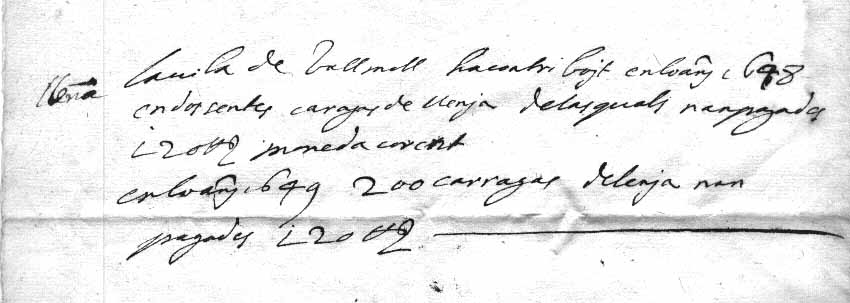 llenÿa la uila de Vallmoll ha contribojt en lo añÿ 1648
en dossentes caragas de llenja de las quals nan pagades
120 ll moneda corent
en lo añÿ 1649 200 carragas de lenja nan
pagades 120 ll